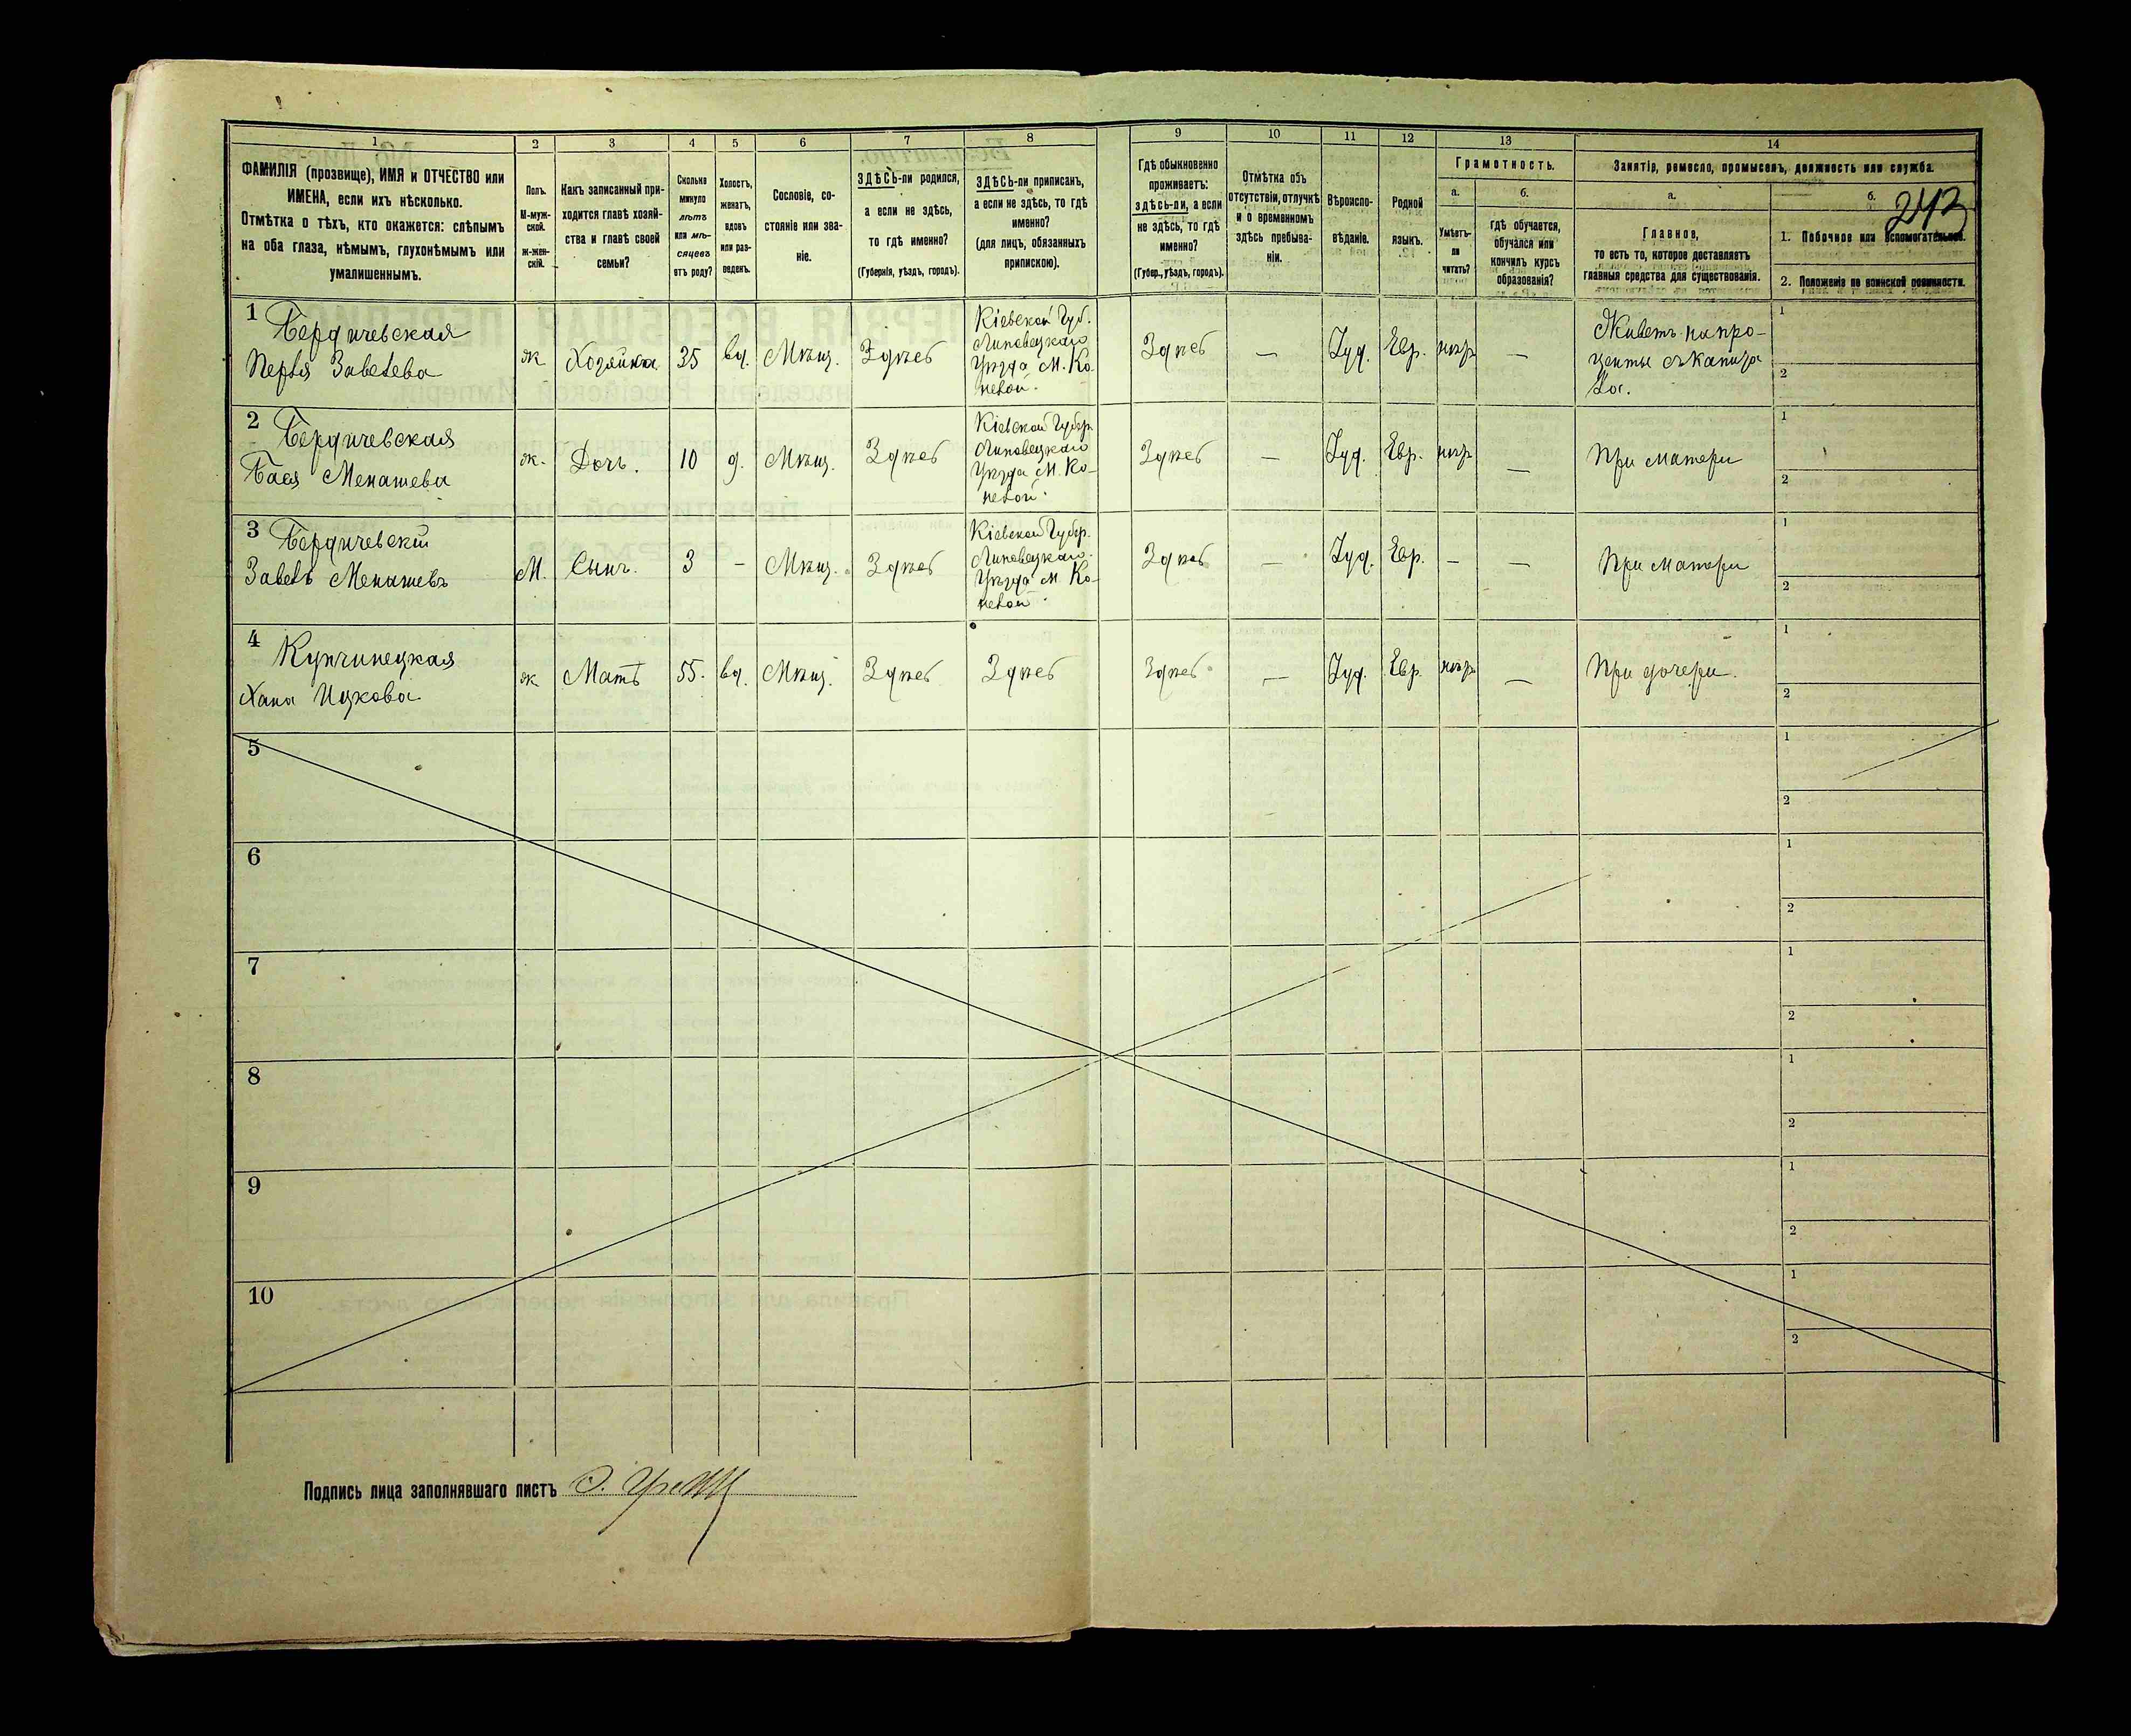 1 2 3 4 5 6 7 8 9 10 11 12 13 14
ФАМИЛІЯ (прозвище), ИМЯ и ОТЧЕСТВО или
ИМЕНА, если ихъ нѣсколько.
Отмѣтка о тѣхъ, кто окажется: слѣпымъ
на оба глаза, нѣмымъ, глухонѣмымъ или
умалишеннымъ.
Полъ.
М-муж-
ской.
ж-жен-
скій.
Какъ записанный при-
ходится главѣ хозяй-
ства и главѣ своей
семьи?
Сколько
минуло
лѣтъ
или мѣ-
сяцевъ
отъ роду?
Холостъ,
женатъ,
вдовъ
или раз-
веденъ.
Сословіе, со-
стояніе или зва-
ніе.
ЗДѢСЬ-ли родился,
а если не здѣсь,
то гдѣ именно?
(Губернія, уѣздъ, городъ).
ЗДѢСЬ-ли приписанъ,
а если не здѣсь, то гдѣ
именно?
(для лицъ, обязанныхъ
припискою).
Гдѣ обыкновенно
проживаетъ:
здѣсь-ли, а если
не здѣсь, то гдѣ
именно?
(Губер., уѣздъ, городъ).
Отмѣтка объ
отсутствіи, отлучкѣ
и о временномъ
здѣсь пребыва-
ніи.
Вѣроиспо-
вѣданіе.
Родной
языкъ.
Грамотность.
а.
Умѣетъ-
ли
читать?
б.
гдѣ обучается,
обучался или
кончилъ курсъ
образованія?
Занятіе, ремесло, промыселъ, должность или служба.
а.
Главное,
то есть то, которое доставляетъ
главныя средства для существованія.
б.
243
1. Побочное или вспомогательное.
2. Положеніе по воинской повинности.
1 Бердичевская
Перля Завелева
ж Хозяйка 35 вд. Мѣщ. Здѣсь
Кіевской Губ.
Липовецкаго
Уѣзда М. Ко-
нелой.
Здѣсь — Іуд. Евр. нѣтъ —
Живетъ на про-
центы съ капита
ло.
1
2
2 Бердичевская
Бася Менашева
ж. Дочь. 10 д. Мѣщ. Здѣсь
Кіевской Губер.
Липовецкаго
Уѣзда М. Ко-
нелой.
Здѣсь — Іуд. Евр. нѣтъ — При матери
1
2
3 Бердичевскій
Завель Менашевъ
М. Сынъ. 3 — Мѣщ. Здѣсь
Кіевской Губер.
Липовецкаго
Уѣзда М. Ко-
нелой.
Здѣсь — Іуд. Евр. — — При матери
1
2
4 Купчинецкая
Хана Ицкова
ж Мать 55. вд. Мѣщ. Здѣсь Здѣсь Здѣсь — Іуд. Евр. нѣтъ — При дочери.
1
2
5
1
2
6
1
2
7
1
2
8
1
2
9
1
2
10
1
2
Подпись лица заполнявшаго листъ